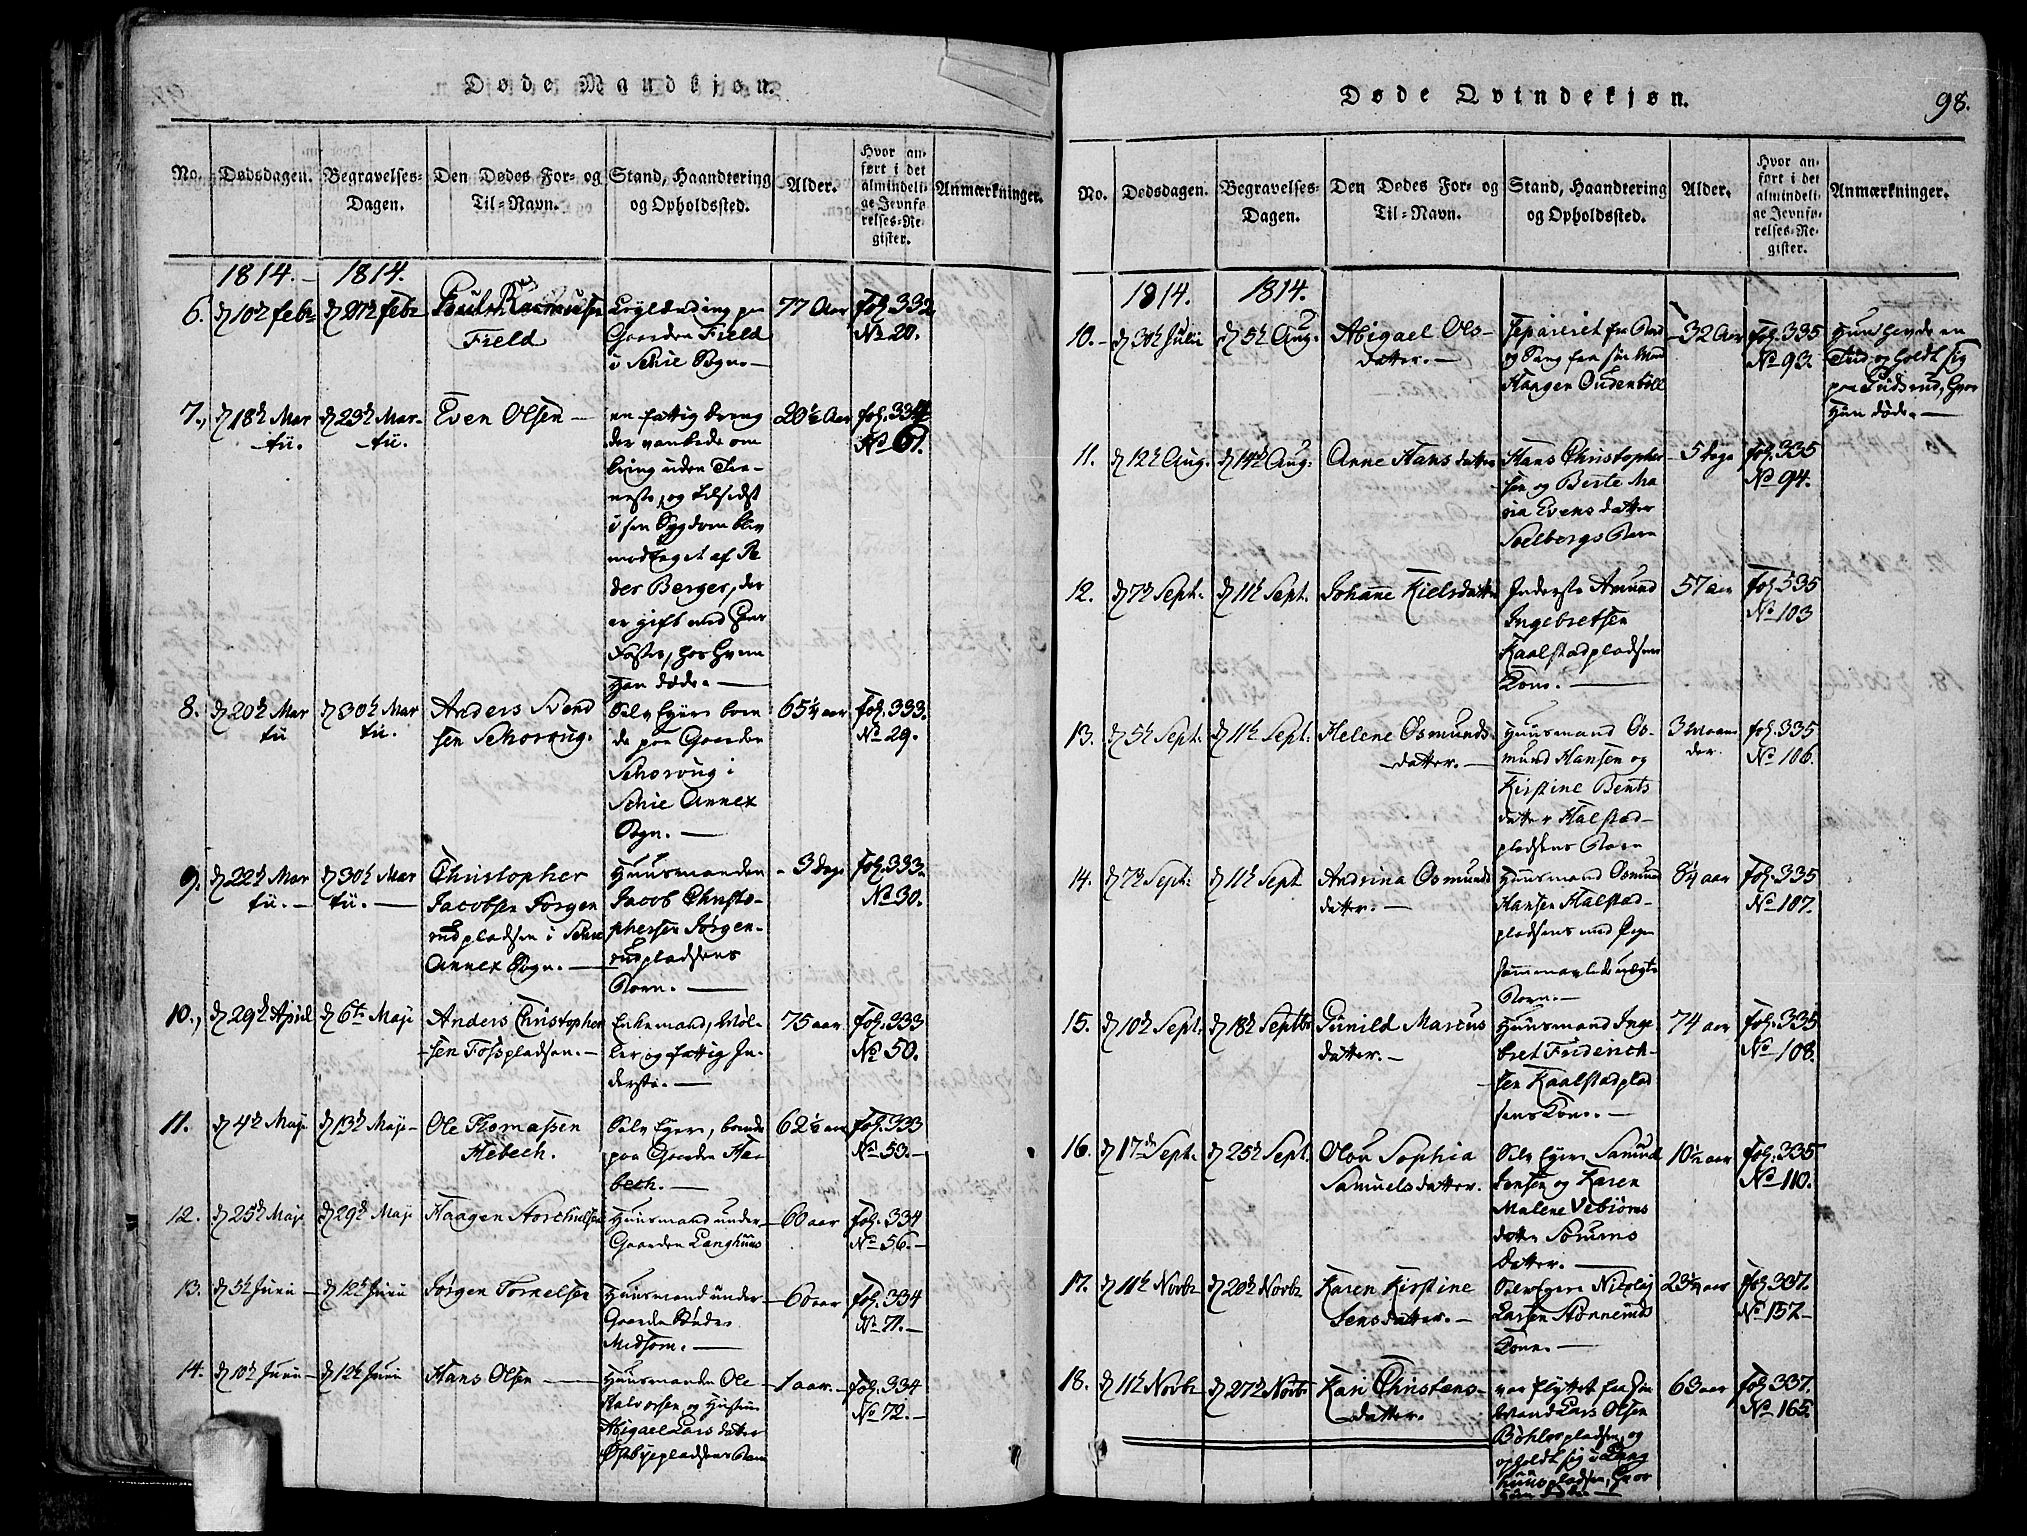 Døde Mandkjøn.
No.
Dødsdagen.
Begravelses-
Dagen.
Den Dødes For- og
Til-Navn.
Stand, Haandtering
og Opholdssted.
Alder.
Hvor an-
ført i det
almindeli-
ge Jevnfø-
relses-Re-
gister.
Anmærkninger.
1814.
1814.
6.
10 febr
27 febr
Rasmusen
Field
Gaarden Field
i Schie Sogn
77 Aar
fol. 332
No 20.
7.
18 Mar
tii.
23 Mar-
tii.
Even Olsen
en fattig dreng
der vankede om
kring uden Tie-
neste, og tilsidst
i sin Sygdom blev
modtaget af Pe
der Berger, der
er gift med hans
Faster, hos hvem
han døde.
20½ Aar
fol. 334
No 61.
8.
20 Mar
tii
30 Mar
tii.
Anders Svend
sen
Selv Eyer, boen
de paa Gaarden
i
Schie Annex
Sogn.
65¼ aar
fol. 333.
No 29.
9.
22 Mar
tii.
30 Mar
tii.
Christopher
Jacobsen Jørgen
rudpladsen i Schie
Annex Sogn.
Huusmanden
Jacob Christo-
phersen Jørgen-
rudpladsens
Barn.
3 dage
fol. 333.
No 30.
10.
29 April
6te Maji
Anders Christopher
sen Fosspladsen.
Enkemand, Møl-
ler og fattig In-
derste.
75 aar
fol. 333
No 50.
11.
4 Maji
13 Maji
Ole Thomassen
Hebech.
Selv Eyer, boende
paa Gaarden He-
bech.
62½ aar
fol. 333
No 53.
12.
25 Maji
29 Maji
Haagen
Huusmand under
Gaarden Langhuus
60 aar
fol. 334
No 56.
13.
5 Junii
12 Junii
Jørgen
Huusmand under
Gaarden
Midsom.
60 aar
fol. 334
No 71.
14.
10 Junii
12 Junii
Hans Olsen
Huusmanden Ole
Halvorsen og Hustru
Abigael Larsdatter
pladsens Barn
1 aar.
fol. 334
No 72.
Døde Qvindekjøn.
98.
No.
Dødsdagen.
Begravelses-
Dagen.
Den Dødes For- og
Til-Navn.
Stand, Haandtering
og Opholdssted.
Alder.
Hvor an-
ført i det
almindeli-
ge Jevnfø-
relses-Re-
gister.
Anmærkninger.
1814.
1814.
10.
Julii
5 Aug.
Abigael Ols-
datter.
Separeret fra Bord
og Seng fra sin Mand
Haagen Oudenbøll
32 Aar
fol. 335
No 93.
Hun havde en
Tid opholdt sig
paa, hvor
hun døde.
11.
12 Aug.
14 Aug.
Anne Hansdatter
Hans Christopher
sen og Berte Ma
ria Evensdatter
Soelbergs Barn
5 dage
fol. 335
No 94.
12.
7 Sept.
11 Sept.
Johane Kielsdatter
Inderste Amund
Ingebretsen
Kaalstadpladsens
Kone.
57 aar
fol. 335
No 103
13.
5 Sept.
11 Sept.
Helene Osmunds
datter.
Huusmand Os-
mund Hansen og
Kirstine Bents
datter Kalstad-
pladsens Barn
3 Maane
der.
fol. 335
No 106.
14.
7 Sept.
11 Sept
Andrina Osmunds
datter.
Huusmand Osmund
Hansen Kalstad-
pladsens med
Barn.
8¼ aar
fol. 335
No 107.
15.
10 Sept.
18 Septbr
Gunild Marcus
datter.
Huusmand Inge
bret Friderich-
sen Kaalstadplad
sens Kone.
74 aar
fol. 335
No 108.
16.
17de Sept.
25 Sept.
Olou Sophia
Samuelsdatter.
Selv Eyer Samuel
Jensen og Karen
Malene
datter
datter.
10½ aar
fol. 335
No 110.
17.
11 Novbr
20 Novbr
Karen Kirstine
Jensdatter.
Selv Eyer Nicolaj
Larsen
Kone.
23¼ aar
fol. 337.
No 157
18.
11 Novbr
27 Novbr
Kari Christens-
datter.
var flyttet fra sin
Mand Lars Olsen
Bøhlerpladsen, og
opholdt sig i Lang
huuspladsen, hvor
hun døde.
63 aar
fol. 337.
No 165.